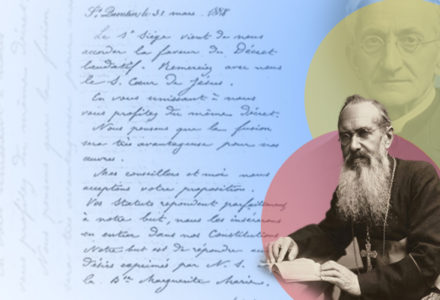 St Quentin le 31 mars 1888
Le St Siège vient de nous
accorder la faveur du Décret
laudatif. Remerciez avec nous
le S. Cœur de Jésus.
En vous unissant à nous
vous profitez du même décret.
Nous pensons que la fusion
sera très avantageuse pour nos
œuvres.
Mes conseillers et moi nous
acceptons votre proposition.
Vos Statuts répondent parfaitement
à notre but, nous les insérerons
en entier dans nos Constitutions
Notre but est de répondre aux
désirs exprimés par N. S. à
la Bse Marguerite Marie.